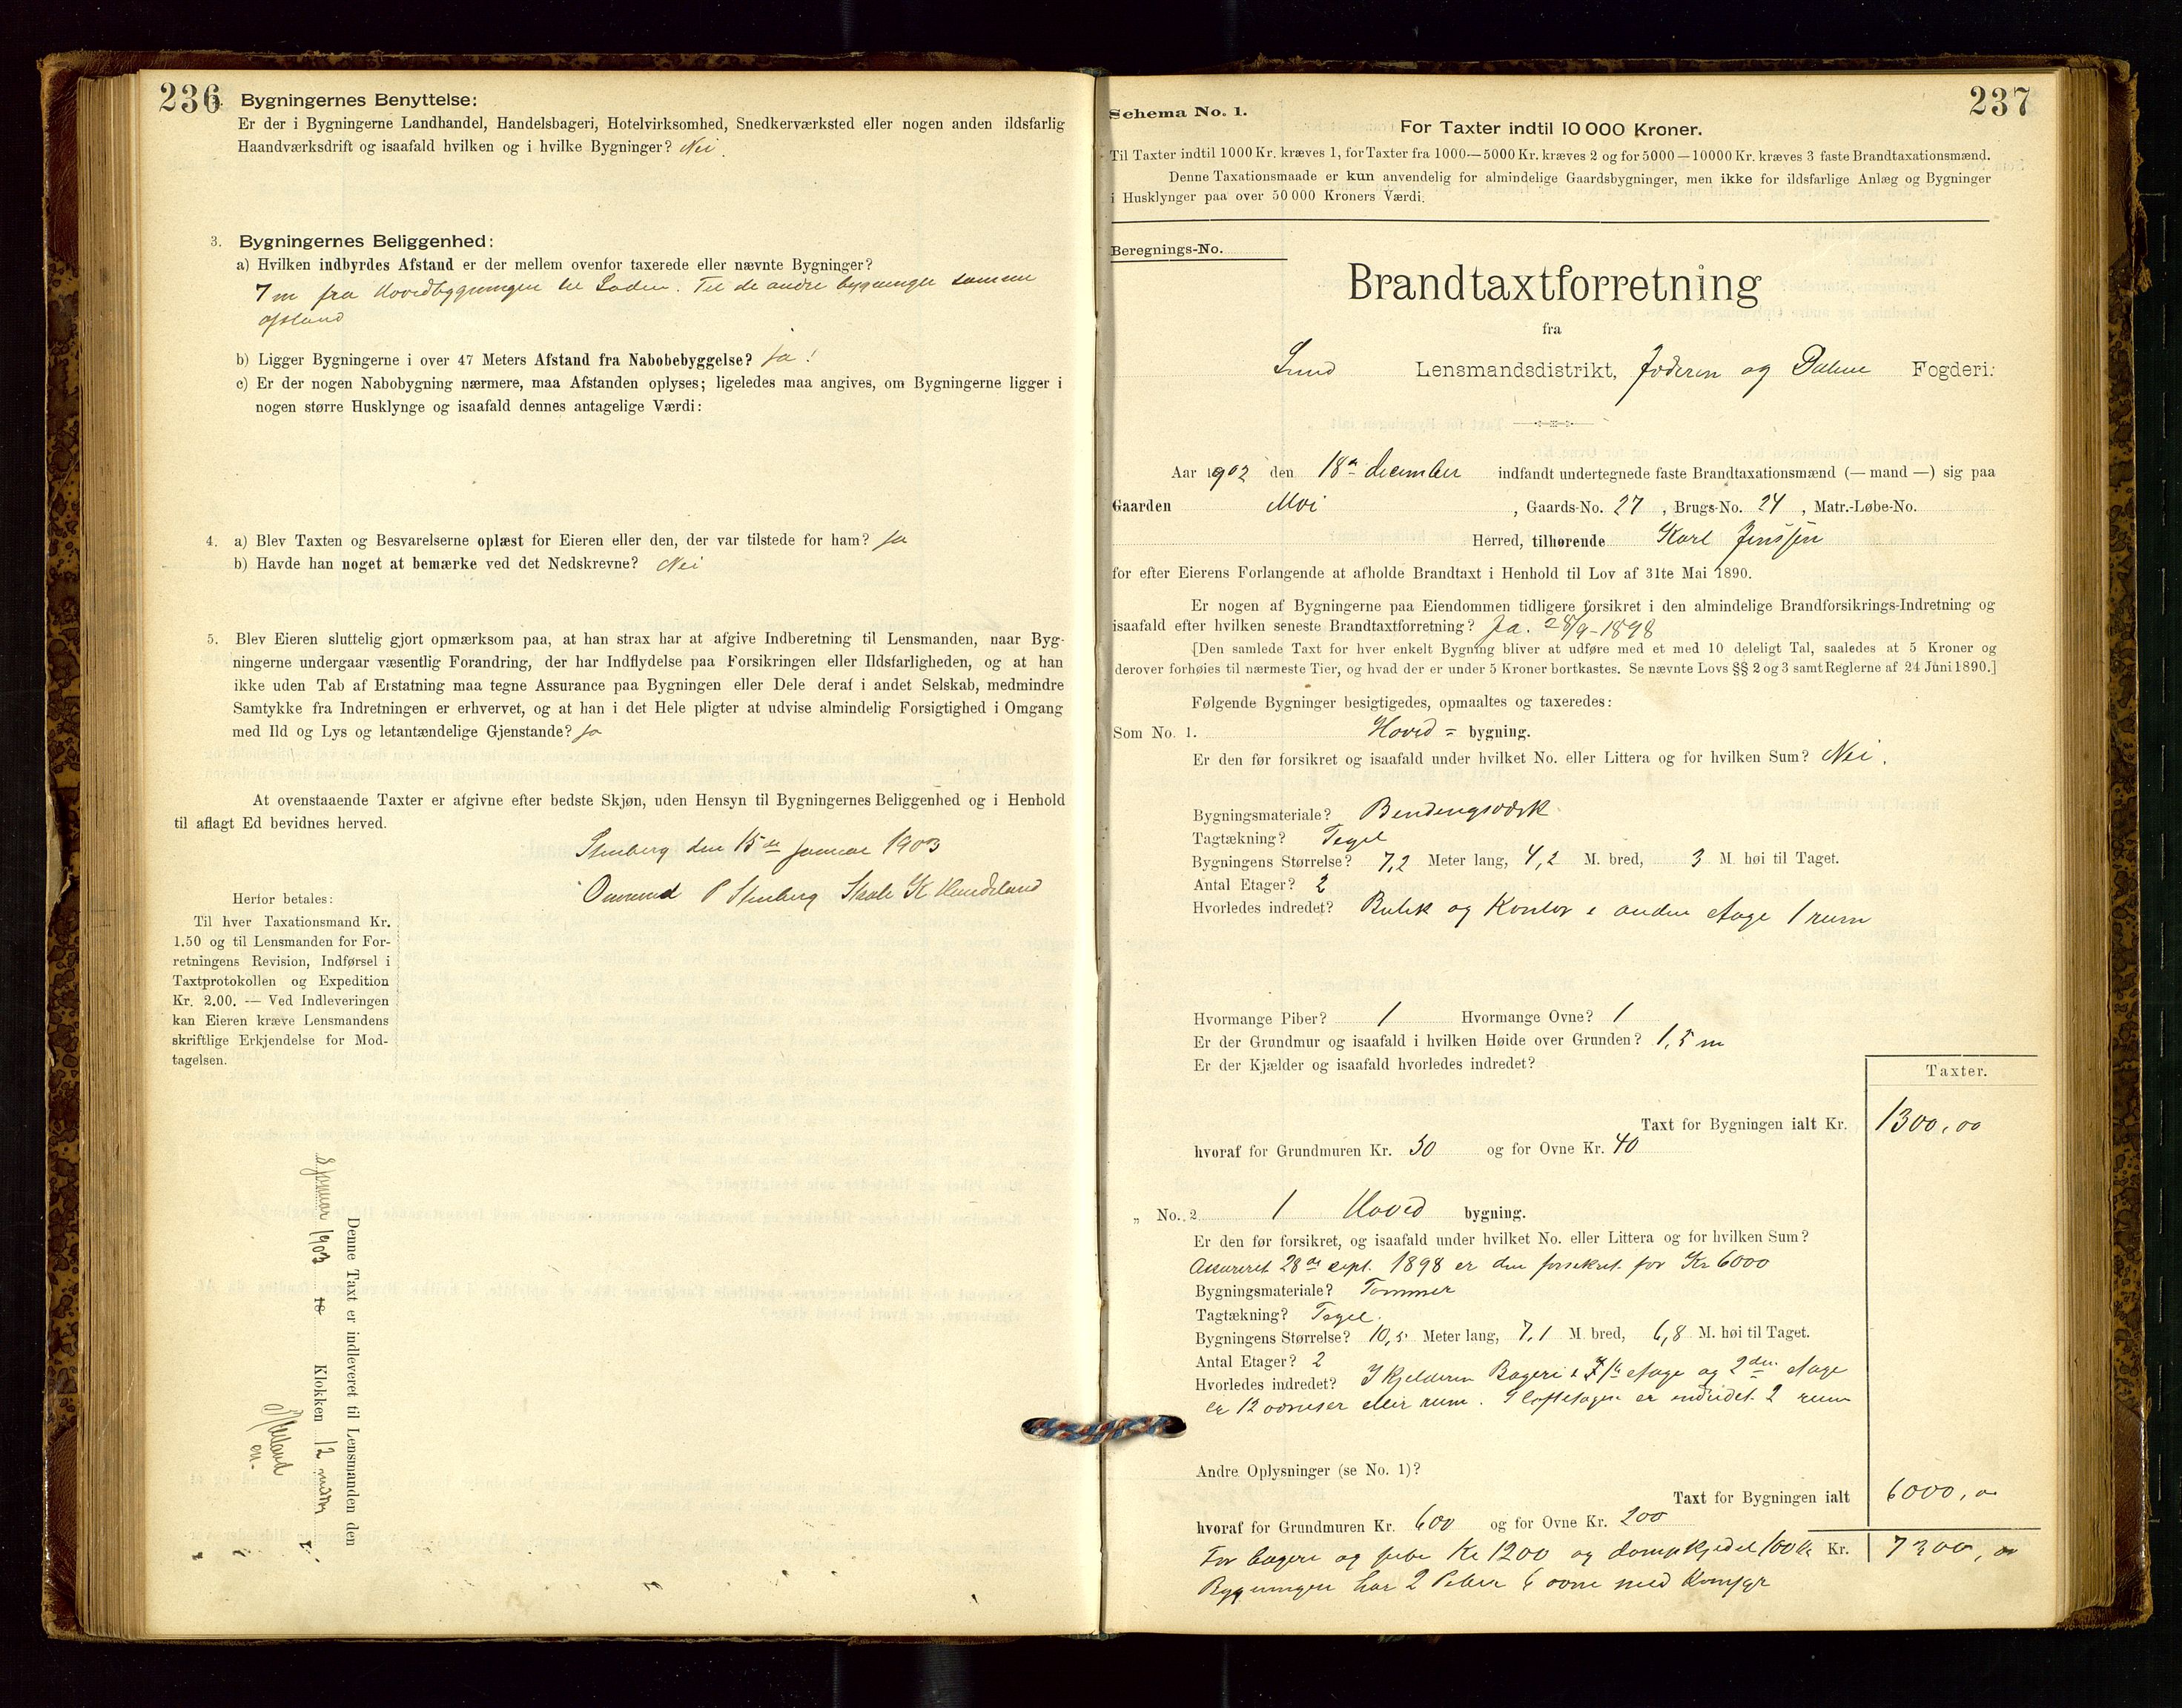 236
Bygningernes Benyttelse:
Er der i Bygningerne Landhandel, Handelsbageri, Hotelvirksomhed, Snedkerværksted eller nogen anden ildsfarlig
Haandværksdrift og isaafald hvilken og i hvilke Bygninger? Nei.
3. Bygningernes Beliggenhed:
a) Hvilken indbyrdes Afstand er der mellem ovenfor taxerede eller nævnte Bygninger?
7 m fra Hovedbygningen til Laden. Til de andre bygninger samme
afstand
b) Ligger Bygningerne i over 47 Meters Afstand fra Nabobebyggelse? Ja!
c) Er der nogen Nabobygning nærmere, maa Afstanden oplyses; ligeledes maa angives, om Bygningerne ligger i
nogen større Husklynge og isaafald dennes antagelige Værdi:
4. a) Blev Taxten og Besvarelserne oplæst for Eieren eller den, der var tilstede for ham? Ja
b) Havde han noget at bemærke ved det Nedskrevne? Nei
5. Blev Eieren sluttelig gjort opmærksom paa, at han strax har at afgive Indberetning til Lensmanden, naar Byg-
ningerne undergaar væsentlig Forandring, der har Indflydelse paa Forsikringen eller Ildsfarligheden, og at han
ikke uden Tab af Erstatning maa tegne Assurance paa Bygningen eller Dele deraf i andet Selskab, medmindre
Samtykke fra Indretningen er erhvervet, og at han i det Hele pligter at udvise almindelig Forsigtighed i Omgang
med Ild og Lys og letantændelige Gjenstande? Ja
At ovenstaaende Taxter er afgivne efter bedste Skjøn, uden Hensyn til Bygningernes Beliggenhed og i Henhold
til aflagt Ed bevidnes herved.
Stenberg den 15de Januar 1903
Ommund P Stenberg Skole K Hundeland
Herfor betales:
Til hver Taxationsmand Kr.
1.50 og til Lensmanden for For-
retningens Revision, Indførsel i
Taxtprotokollen og Expedition
Kr. 2.00. — Ved Indleveringen
kan Eieren kræve Lensmandens
skriftlige Erkjendelse for Mod-
tagelsen.
Denne Taxt er indleveret til Lensmanden den
Januar 1903 18 Klokken 12 middag
237
Schema No. 1.
For Taxter indtil 10 000 Kroner.
Til Taxter indtil 1000 Kr. kræves 1, for Taxter fra 1000—5000 Kr. kræves 2 og for 5000—10000 Kr. kræves 3 faste Brandtaxationsmænd.
Denne Taxationsmaade er kun anvendelig for almindelige Gaardsbygninger, men ikke for ildsfarlige Anlæg og Bygninger
i Husklynger paa over 50 000 Kroners Værdi.
Beregnings-No.
Brandtaxtforretning
fra
Lund Lensmandsdistrikt, Jæderen og Dalene Fogderi.
Aar 1902 den 18de december indfandt undertegnede faste Brandtaxationsmænd (— mand —) sig paa
Gaarden Moi, Gaards-No. 27, Brugs-No. 24, Matr.-Løbe-No.
Herred, tilhørende Karl Jenssen
for efter Eierens Forlangende at afholde Brandtaxt i Henhold til Lov af 31te Mai 1890.
Er nogen af Bygningerne paa Eiendommen tidligere forsikret i den almindelige Brandforsikrings-Indretning og
isaafald efter hvilken seneste Brandtaxtforretning? Ja. 28/9-1898
[Den samlede Taxt for hver enkelt Bygning bliver at udføre med et med 10 deleligt Tal, saaledes at 5 Kroner og
derover forhøies til nærmeste Tier, og hvad der er under 5 Kroner bortkastes. Se nævnte Lovs §§ 2 og 3 samt Reglerne af 24 Juni 1890.]
Følgende Bygninger besigtigedes, opmaaltes og taxeredes:
Som No. 1. Hoved = bygning.
Er den før forsikret og isaafald under hvilket No. eller Littera og for hvilken Sum? Nei.
Bygningsmateriale? Bendingsværk
Tagtækning? Tegel
Bygningens Størrelse? 7,2 Meter lang, 4,2 M. bred, 3 M. høi til Taget.
Antal Etager? 2
Hvorledes indredet? Butik og Kontor i anden etage 1 rum
Hvormange Piber? 1 Hvormange Ovne? 1
Er der Grundmur og isaafald i hvilken Høide over Grunden? 1,5 m
Er der Kjælder og isaafald hvorledes indredet?
Taxter.
Taxt for Bygningen ialt Kr. 1300,00
hvoraf for Grundmuren Kr. 50 og for Ovne Kr. 40
„ No. 2 1 Hoved bygning.
Er den før forsikret, og isaafald under hvilket No. eller Littera og for hvilken Sum?
Assureret 28de sept. 1898 er den forsikret for Kr 6000
Bygningsmateriale? Tømmer
Tagtækning? Tegel.
Bygningens Størrelse? 10,5 Meter lang, 7,1 M. bred, 6,8 M. høi til Taget.
Antal Etager? 2
Hvorledes indredet? I Kjelderen Bageri i 1ste etage og 2den etage
er 12 værelser eller rum. I loftetagen er indredet 2 rum
Andre Oplysninger (se No. 1)?
Taxt for Bygningen ialt 6000,00
hvoraf for Grundmuren Kr. 600 og for Ovne Kr. 200
For bageri og pibe Kr 1200 og dampkjedel 100 Kr Kr. 7300,00
Bygningen har 2 Piber 6 ovne med Komfyr